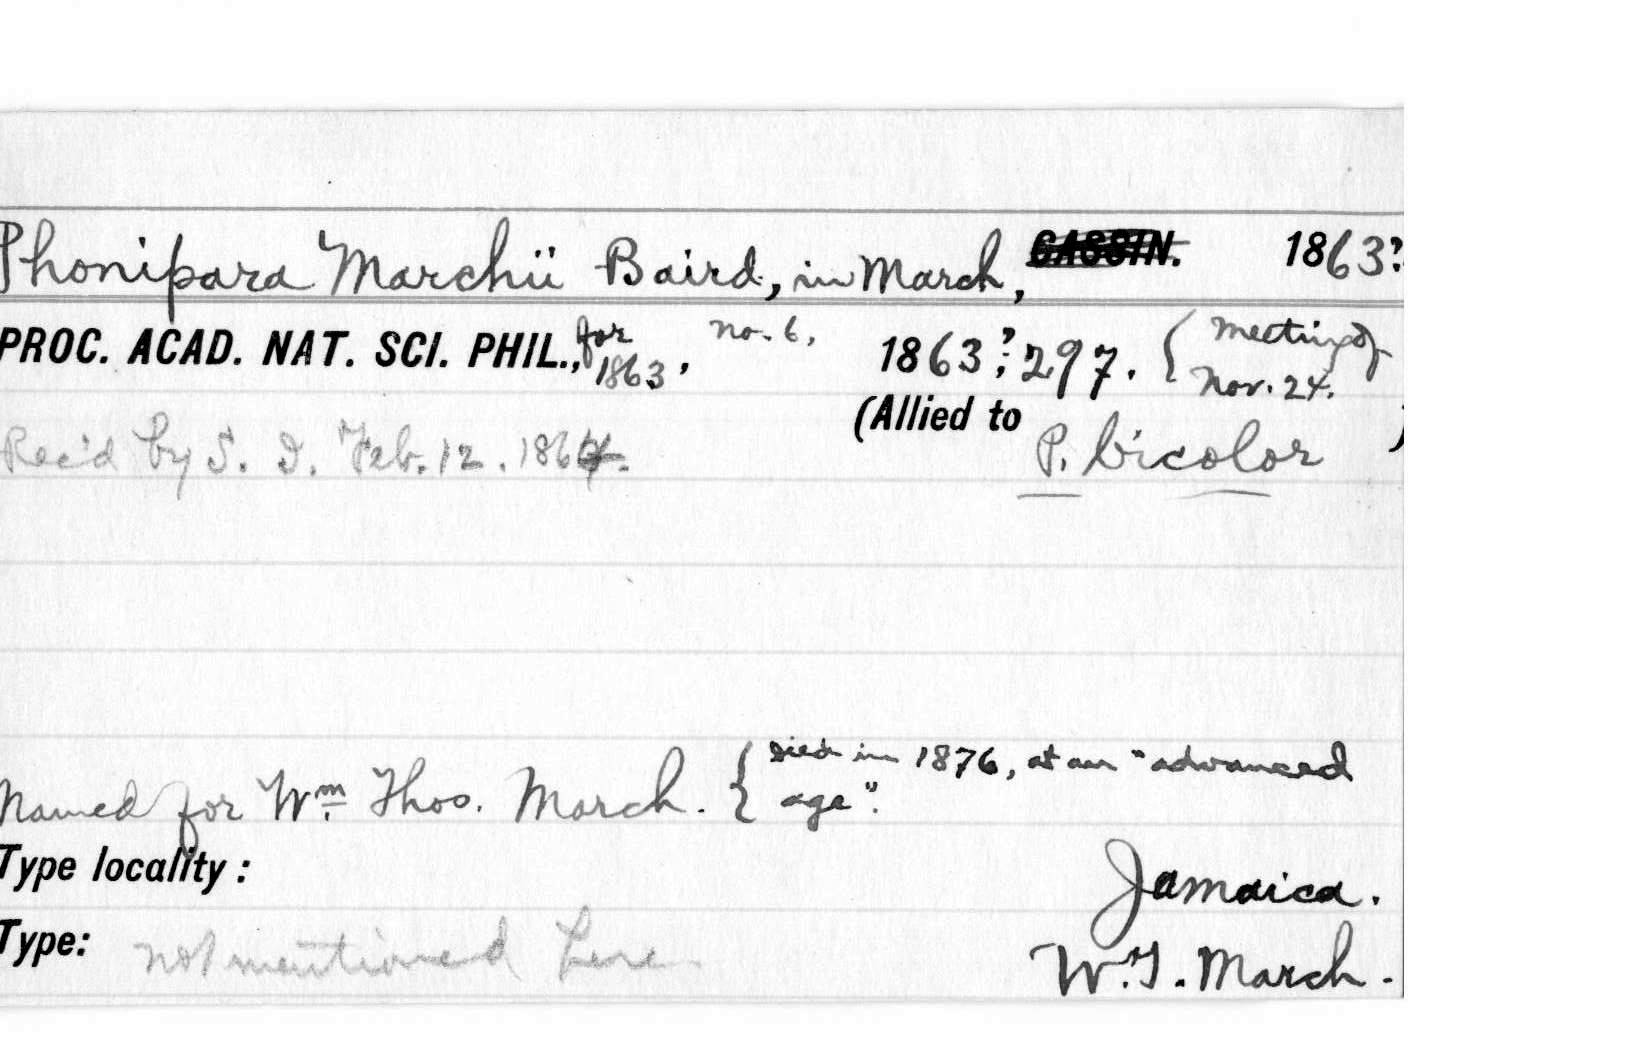 Phonipara Marchii Baird, in March, CASSIN. 1863?
PROC. ACAD. NAT. SCI. PHIL., for 1863, no. 6, 1863?; 297. { Meeting of Nov. 24.
Rec'd by S. I. Feb. 12. 1864. (Allied to P. bicolor )
Named for Wm. Thos. March. { Died in 1876, at an "advanced age".
Type locality: Jamaica.
Type: not mentioned here W. T. March.